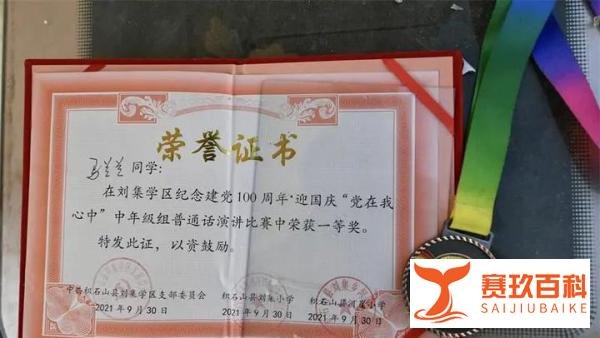 荣誉证书
同学:
在刘集学区纪念建党100周年·迎国庆“党在我
心中”中年级组普通话演讲比赛中荣获一等奖。
特发此证，以资鼓励。
中共积石山县刘集学区支部委员会 积石山县刘集小学 积石山县河崖小学
2021年9月30日 2021年9月30日 2021年9月30日
赛玖百科
SAIJIUBAIKE